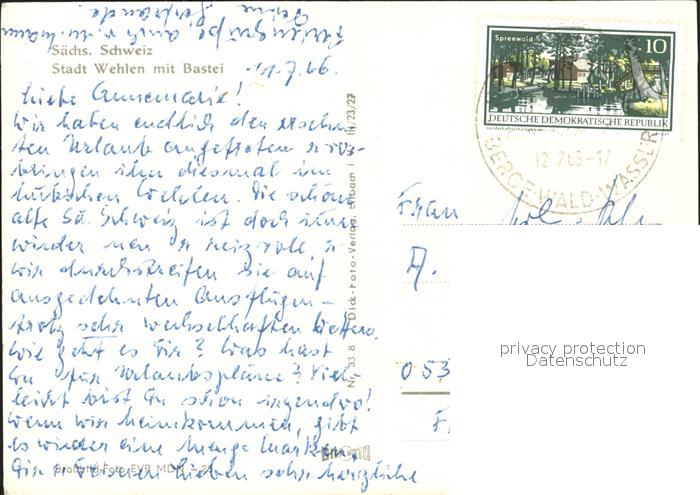 Deine
Gertraude.
Sächs. Schweiz
Stadt Wehlen mit Bastei
11.7.66.
Liebe Annemarie!
Wir haben endlich den ersehn-
ten Urlaub angetreten u. ver-
bringen ihn diesmal im
hübschen Wehlen. Die schöne
alte Sä. Schweiz ist doch immer
wieder neu u. reizvoll u.
wir durchstreifen sie auf
ausgedehnten Ausflügen –
trotz sehr wechselhaften Wetters.
Wie geht es Dir? Was hast
Du für Urlaubspläne? Viel-
leicht bist Du schon irgendwo!
Wenn wir heimkommen, gibt
es wieder eine Menge Marken.
Dir u. Deinen Lieben sehr herzliche
Großbild-Foto EVR MDN –.25
Spreewald
10
DEUTSCHE DEMOKRATISCHE REPUBLIK
Landschaftsschutzgebiet
12.7.66.-17
BERGE-WALD-WASSER
Frau
A.
053
privacy protection
Datenschutz